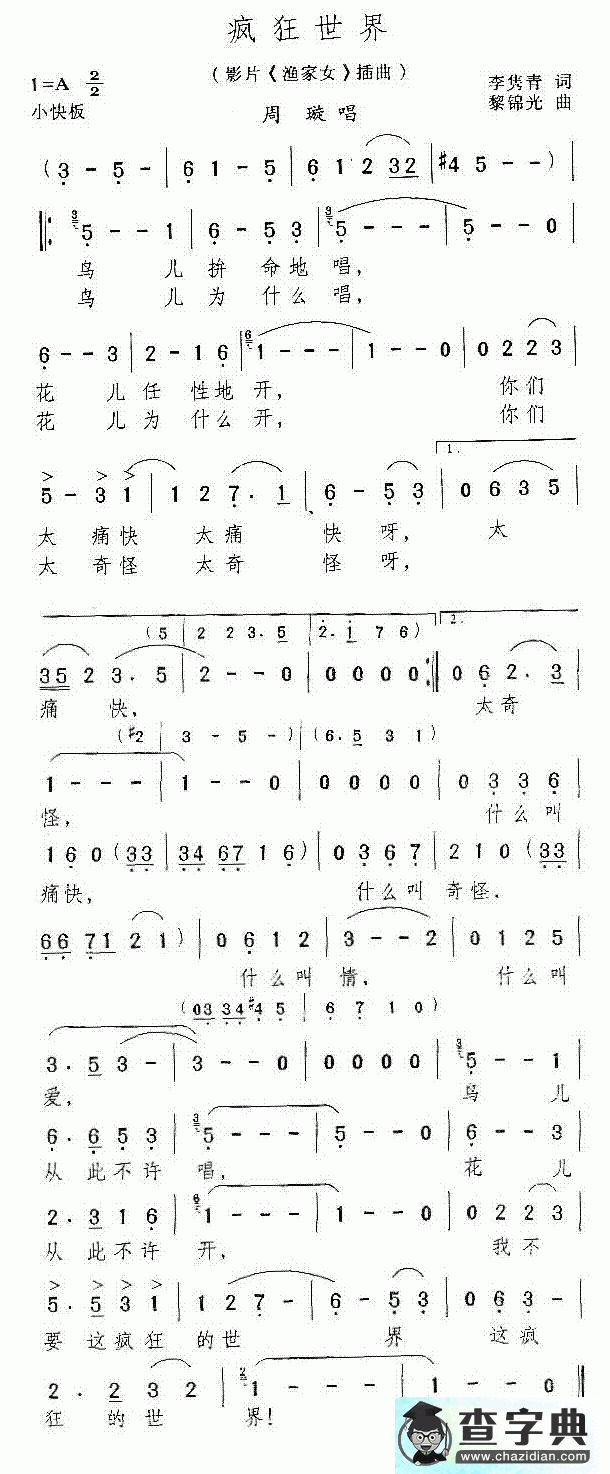 疯狂世界
1=A 2/2
(影片《渔家女》插曲)
李隽青 词
小快板
周璇唱
黎锦光 曲
(3 - 5 - | 6 1 - 5 - | 6 1 2 32 | #4 5 - -)
5 - - 1 | 6 - 5 3 | 5 - - - | 5 - - 0
鸟 儿 拚 命地 唱,
鸟 儿 为 什么 唱,
6 - - 3 | 2 - 1 6 | 1 - - - | 1 - - 0 | 0 2 2 3
花 儿 任 性地 开, 你们
花 儿 为 什么 开, 你们
1.
5 - 3 1 | 1 2 7. 1 | 6 - 5 3 | 0 6 3 5
太 痛快 太痛 快呀, 太
太 奇怪 太奇 怪呀,
(5 | 2 2 3. 5 | 2. 1 7 6) 2.
35 2 3. 5 | 2 - - 0 | 0 0 0 0 :| 0 6 2. 3
痛 快, 太奇
(#2 | 3 - 5 -) | (6. 5 3 1)
1 - - - | 1 - - 0 | 0 0 0 0 | 0 3 3 6
怪, 什么叫
1 6 0 (33 | 34 67 1 6) | 0 3 6 7 | 2 1 0 (33
痛快, 什么叫 奇怪.
66 71 2 1) | 0 6 1 2 | 3 - - 2 | 0 1 2 5
什么叫 情, 什么叫
(03 34 #4 5 | 6 7 1 0)
3. 5 3 - | 3 - - 0 | 0 0 0 0 | 5 - - 1
爱, 鸟 儿
6. 6 5 3 | 5 - - - | 5 - - 0 | 6 - - 3
从此不许 唱, 花 儿
2. 3 1 6 | 1 - - - | 1 - - 0 | 0 2 2 3
从此不许 开, 我不
5. 5 3 1 | 1 2 7 - | 6 - 5 3 | 0 6 3 -
要 这疯狂 的世 界 这疯
2. 2 3 2 | 1 - - - | 1 - - 0
狂 的世 界!
查字典
www.chazidian.com